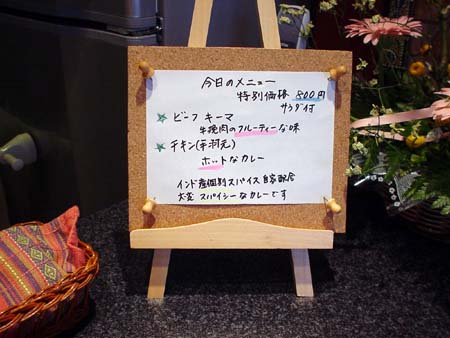 今日のメニュー
特別価格 800円
サラダ付
☆ ビーフ キーマ
牛挽肉のフルーティーな味
☆ チキン(手羽元)
ホットなカレー
インド産個別スパイス自家配合
大変 スパイシーなカレーです